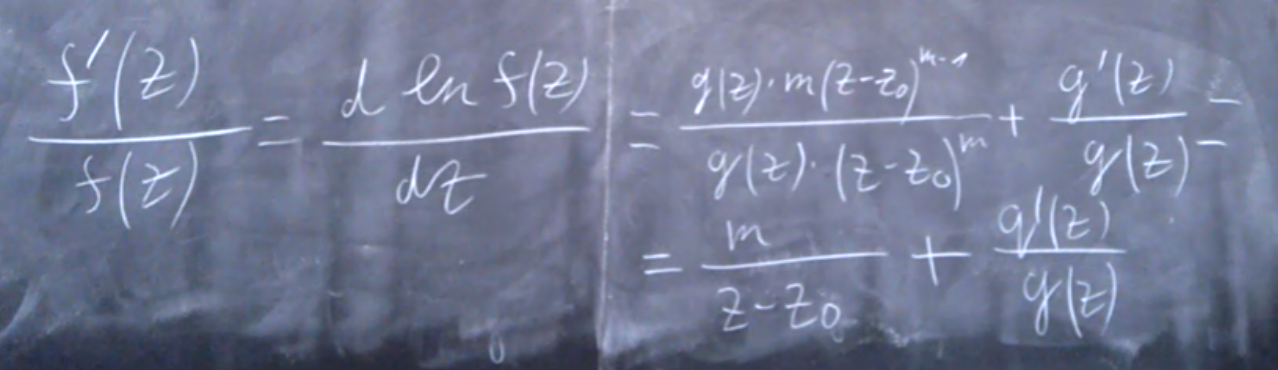 f'(z)/f(z) = d ln f(z)/dz = g(z)·m(z-z₀)^{m-1}/g(z)·(z-z₀)^m + g'(z)/g(z) =
= m/z-z₀ + g'(z)/g(z)